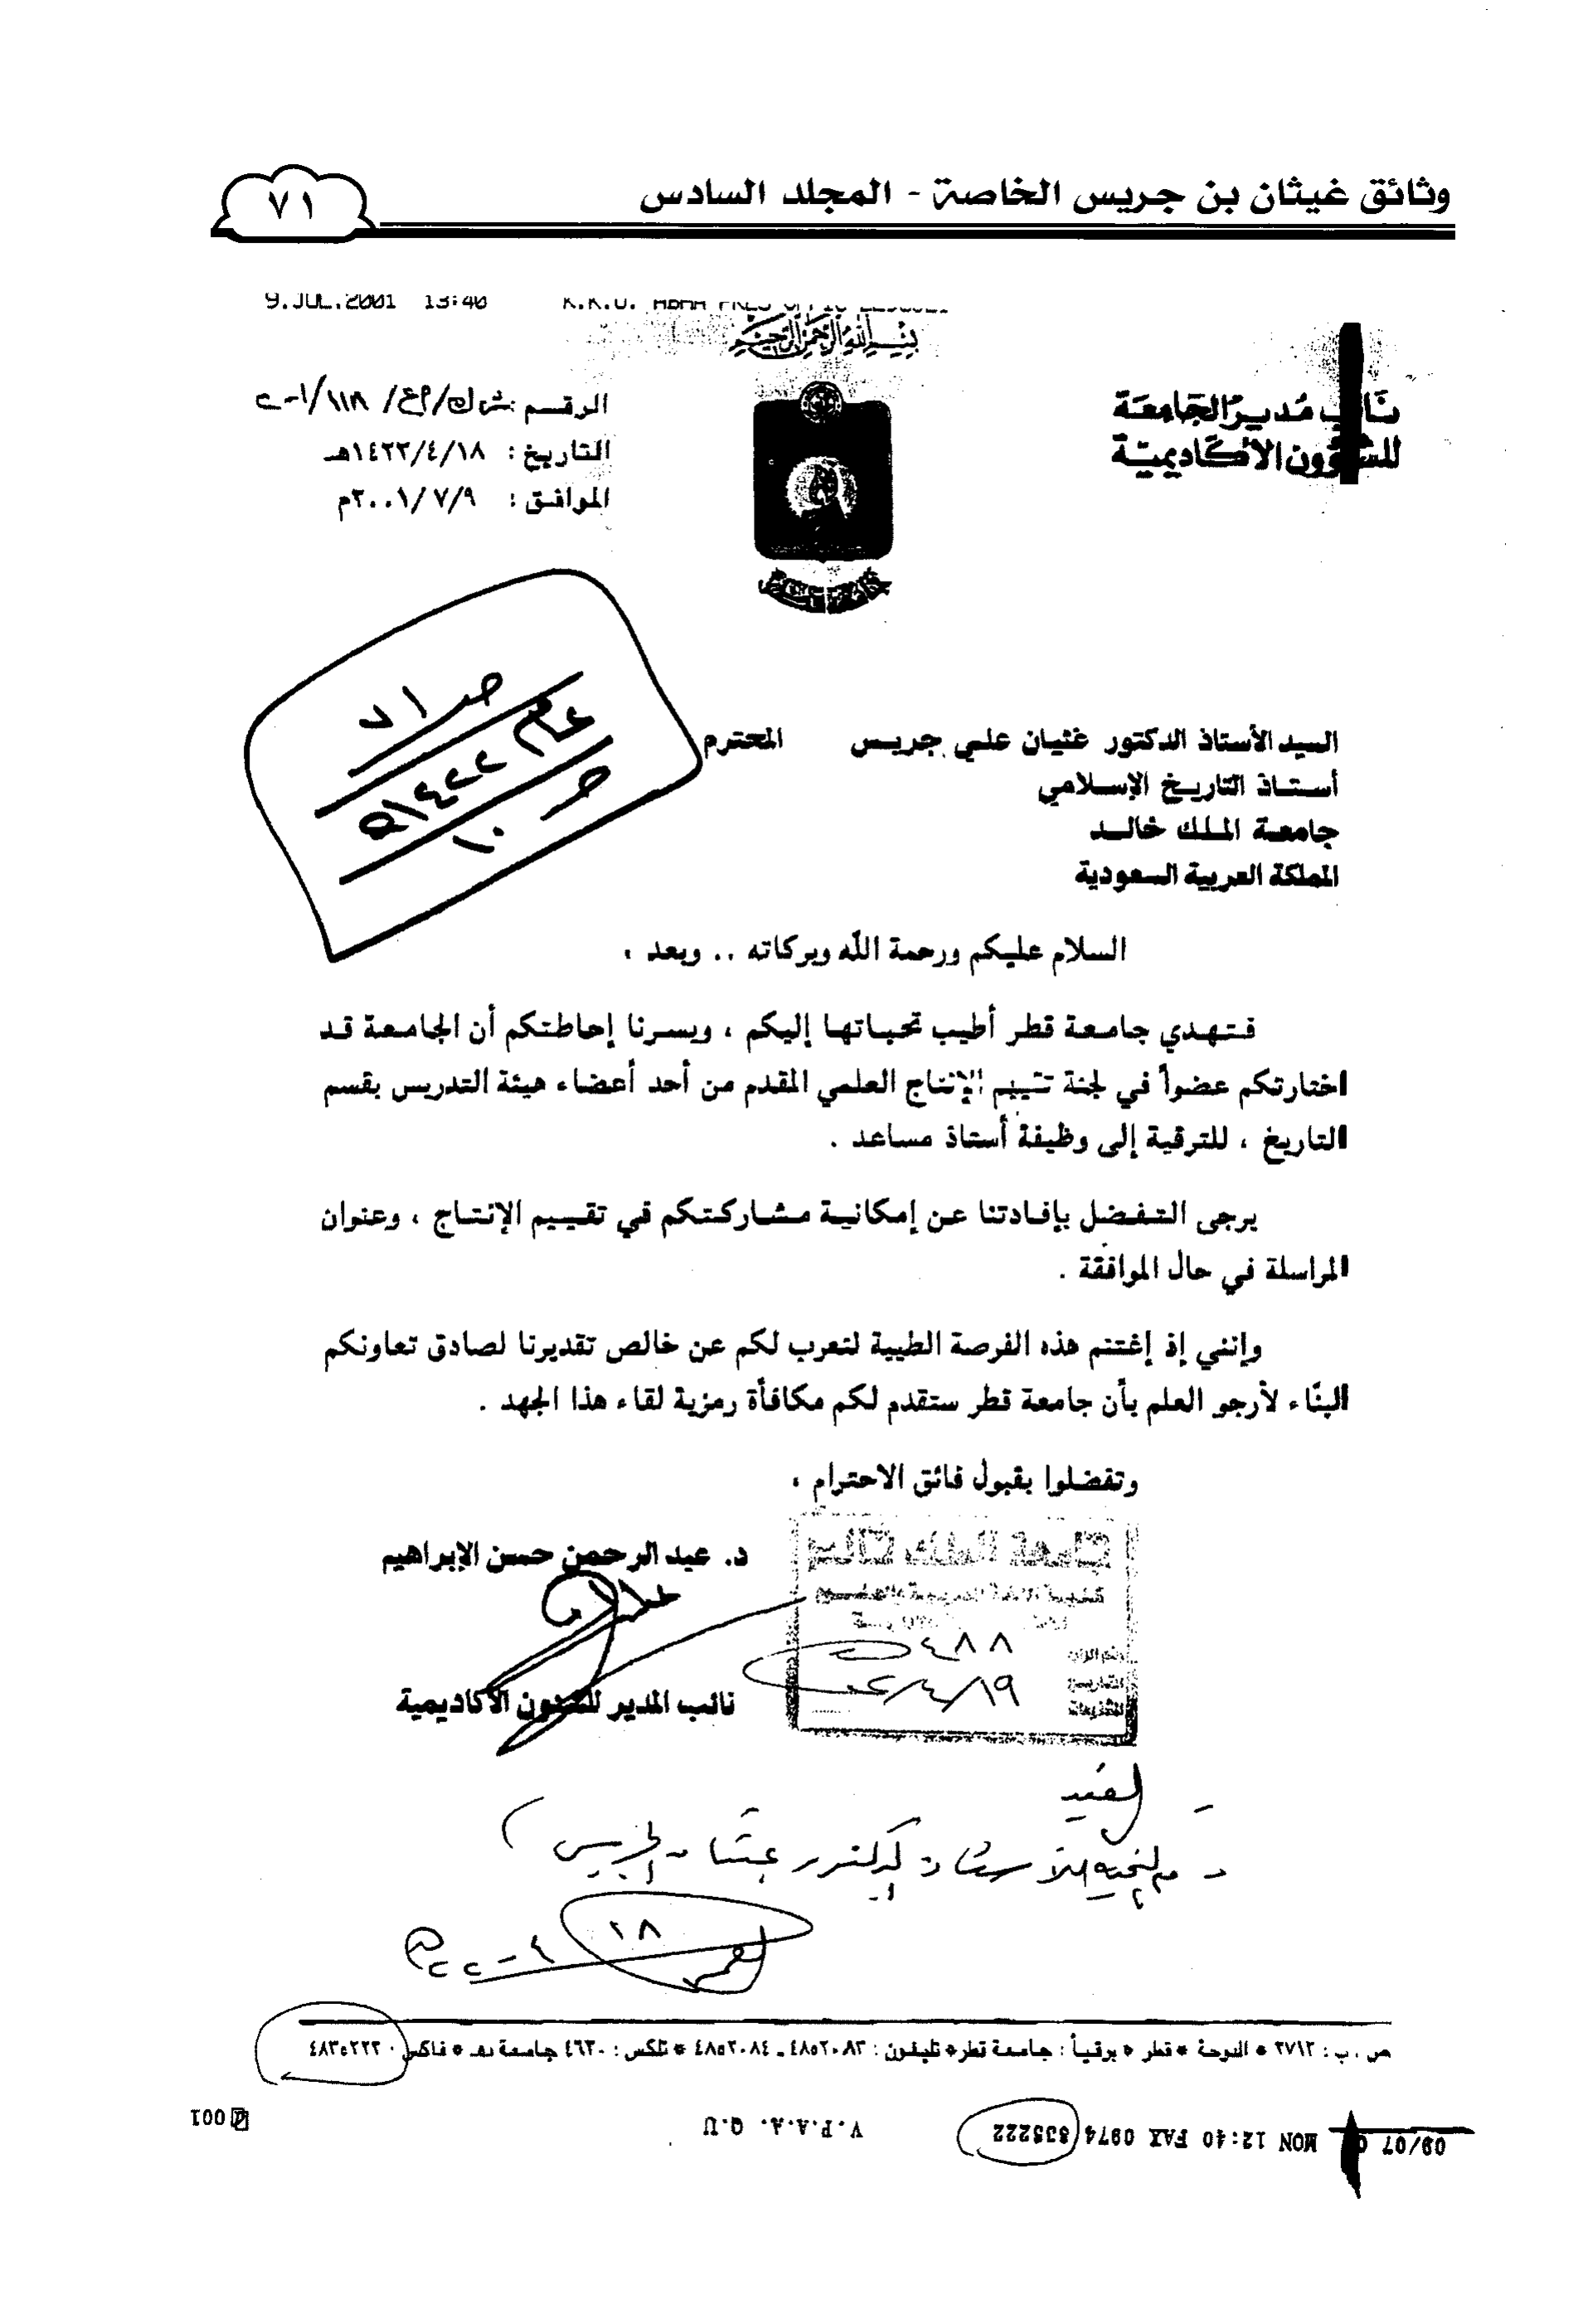 وثائق غيثان بن جريس الخاصة - المجلد السادس
٧١
9.JUL.2001 13:40 K.K.U. ABHA
بسم الله الرحمن الرحيم
نائب مدير الجامعة
للشؤون الأكاديمية
الرقم :
التاريخ : ١٤٢٢/٤/١٨هـ
الموافق : ٢٠٠١/٧/٩م
صـ ٧١
عام
١٤٢٢هـ
صـ ١٠
السيد الأستاذ الدكتور غثيان علي جريس المحترم
أستاذ التاريخ الإسلامي
جامعة الملك خالد
المملكة العربية السعودية
السلام عليكم ورحمة الله وبركاته .. وبعد ،
فتهدي جامعة قطر أطيب تحياتها إليكم ، ويسرنا إحاطتكم أن الجامعة قد
اختارتكم عضواً في لجنة تقييم الإنتاج العلمي المقدم من أحد أعضاء هيئة التدريس بقسم
التاريخ ، للترقية إلى وظيفة أستاذ مساعد .
يرجى التفضل بإفادتنا عن إمكانية مشاركتكم في تقييم الإنتاج ، وعنوان
المراسلة في حال الموافقة .
وإنني إذ إغتنم هذه الفرصة الطيبة لنعرب لكم عن خالص تقديرنا لصادق تعاونكم
البنّاء لأرجو العلم بأن جامعة قطر ستقدم لكم مكافأة رمزية لقاء هذا الجهد .
وتفضلوا بقبول فائق الاحترام ،
د. عبد الرحمن حسن الإبراهيم
نائب المدير للشئون الأكاديمية
جامعة الملك خالد
رقم الوارد ٤٨٨
التاريخ ١٩/٤/٢٢
المشفوعات
ص . ب : ٢٧١٣ * الدوحة * قطر * برقياً : جامعة قطر * تليفون : ٤٨٥٢٠٨٣ - ٤٨٥٢٠٨٤ * تلكس : ٤٦٣٠ جامعة * فاكس ٤٨٣٥٢٢٢
09/07 MON 12:40 FAX 0974 835222 V.P.A.A. Q.U 001